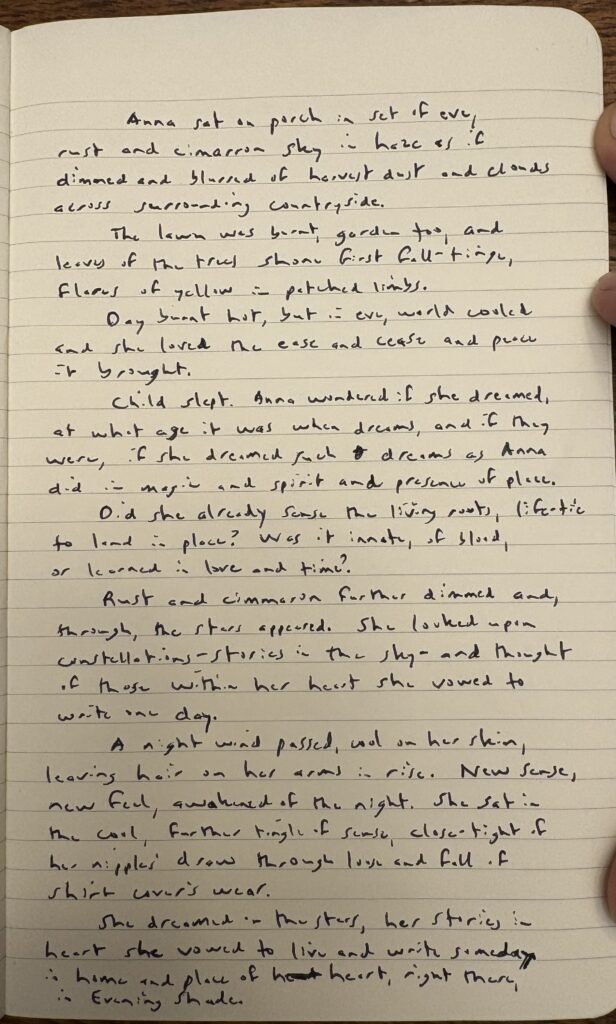 Anna sat on porch in set of eve,
rust and cimarron sky in haze as if
dimmed and blurred of harvest dust and clouds
across surrounding countryside.
The lawn was burnt, garden too, and
leaves of the trees shone first fall-tinge,
flares of yellow in patched limbs.
Day burnt hot, but in eve, world cooled
and she loved the ease and cease and peace
it brought.
Child slept. Anna wondered if she dreamed,
at what age it was when dreams, and if they
were, if she dreamed such dreams as Anna
did in magic and spirit and presence of place.
Did she already sense the living roots, life-tie
to land in place? Was it innate, of blood,
or learned in love and time?
Rust and cimmaron further dimmed and,
through, the stars appeared. She looked upon
constellations-stories in the sky- and thought
of those within her heart she vowed to
write one day.
A night wind passed, cool on her skin,
leaving hair on her arms in rise. New sense,
new feel, awakened of the night. She sat in
the cool, further tingle of sense, close-tight of
her nipples' draw through loose and fall of
shirt cover's wear.
She dreamed in the stars, her stories in
heart she vowed to live and write someday
in home and place of heart, right there,
in Evening Shade.